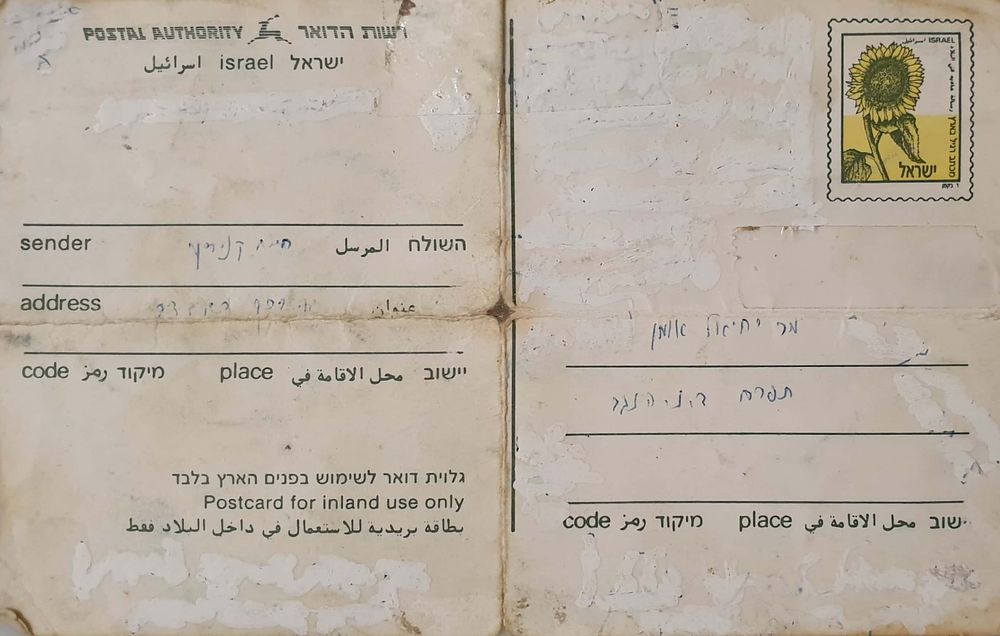 POSTAL AUTHORITY רשות הדואר
ישראל israel اسرائيل
sender השולח المرسل
address عنوان
יישוב محل الاقامة في place מיקוד رمز code
גלוית דואר לשימוש בפנים הארץ בלבד
Postcard for inland use only
بطاقة بريدية للاستعمال في داخل البلاد فقط
ISRAEL اسرائيل
מכתב רגיל בארץ
ישראל
מר יחיאל
תפרח ד.נ. הנגב
ישוב محل الاقامة في place מיקוד رمز code